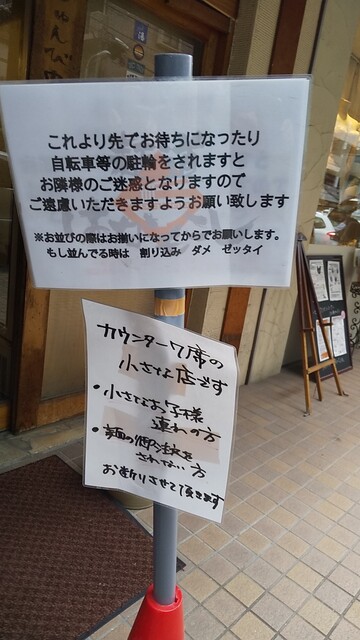 これより先でお待ちになったり
自転車等の駐輪をされますと
お隣様のご迷惑となりますので
ご遠慮いただきますようお願い致します
※お並びの際はお揃いになってからでお願いします。
もし並んでる時は 割り込み ダメ ゼッタイ
カウンター7席の
小さな店です
・小さなお子様
連れの方
・麺の御注文を
されない方
お断りさせて頂きます